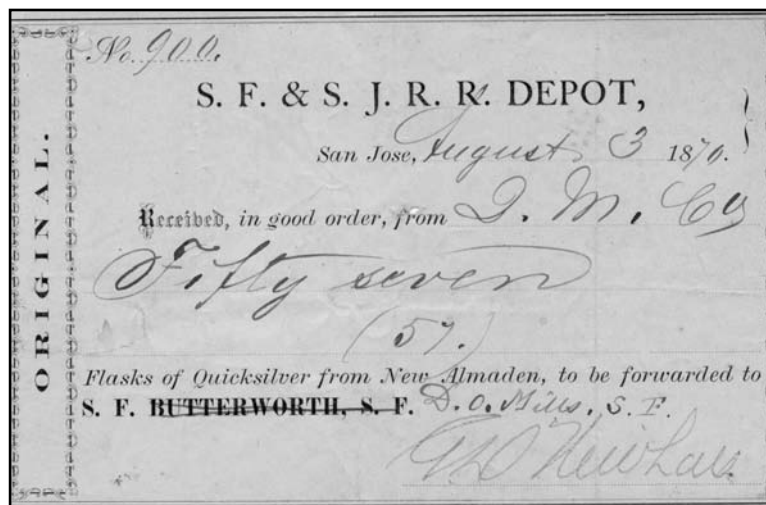 ORIGINAL.
No. 900.
S. F. & S. J. R. R. DEPOT,
San Jose, August 3 1870.
Received, in good order, from Q. M. Co
Fifty seven
(57.)
Flasks of Quicksilver from New Almaden, to be forwarded to
S. F. BUTTERWORTH, S. F. D. O. Mills, S. F.